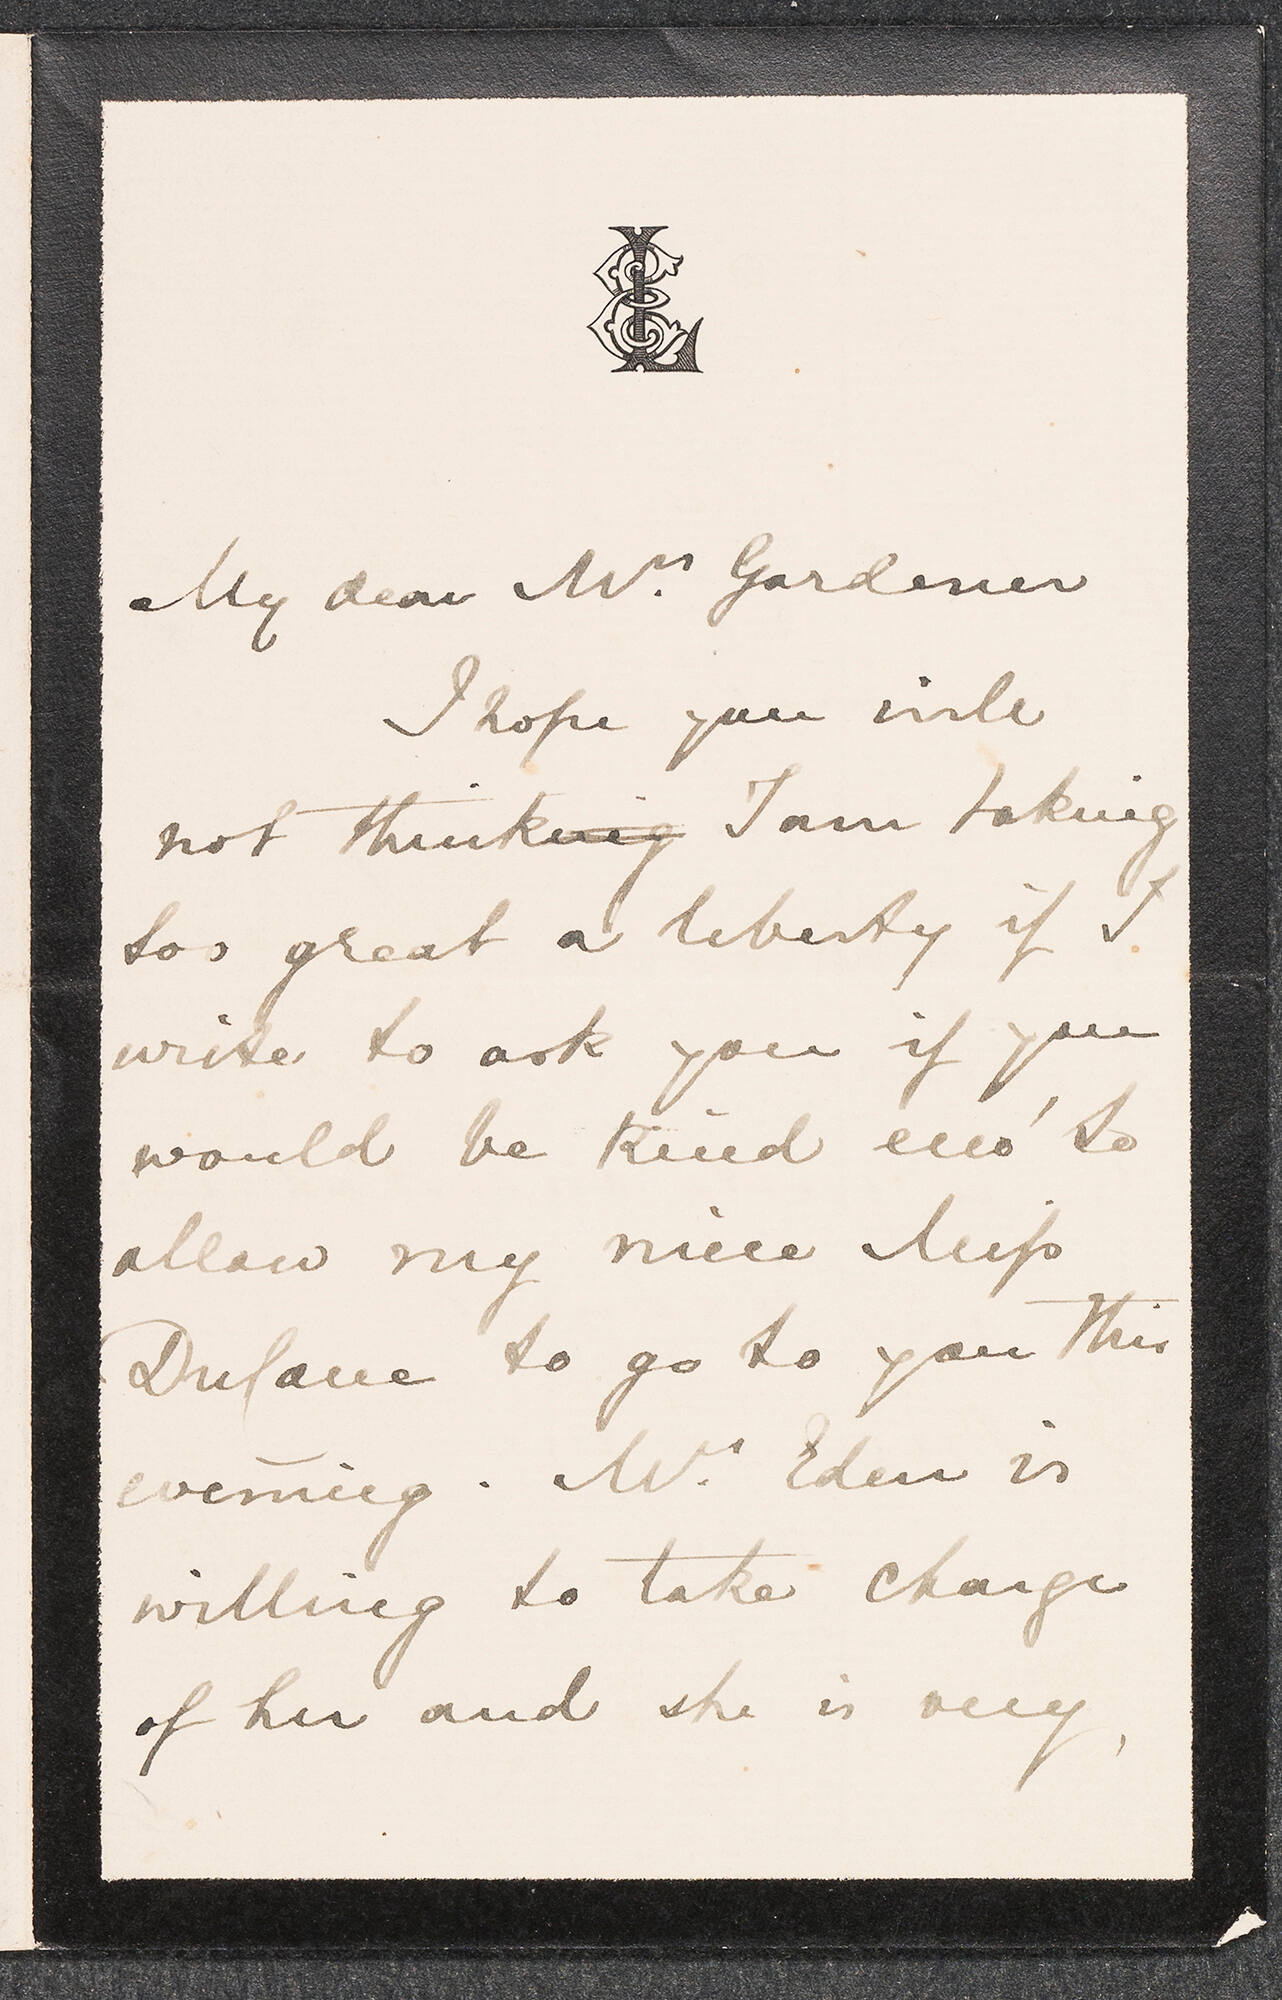 My dear Mrs. Gardener
I hope you will
not think~~ing~~ I am taking
too great a liberty if I
write to ask you if you
would be kind eno' to
allow my niece Miss
Dulane to go to you this
evening. Mrs. Eden is
willing to take charge
of her and she is very,